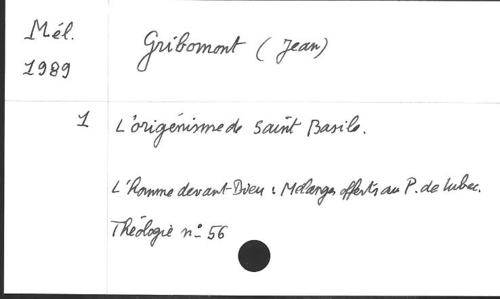 Mél.
1989
Gribomont (Jean)
1 L'origénisme de Saint Basile.
L'Homme devant Dieu : Mélanges offerts au P. de Lubac.
Théologie nº 56